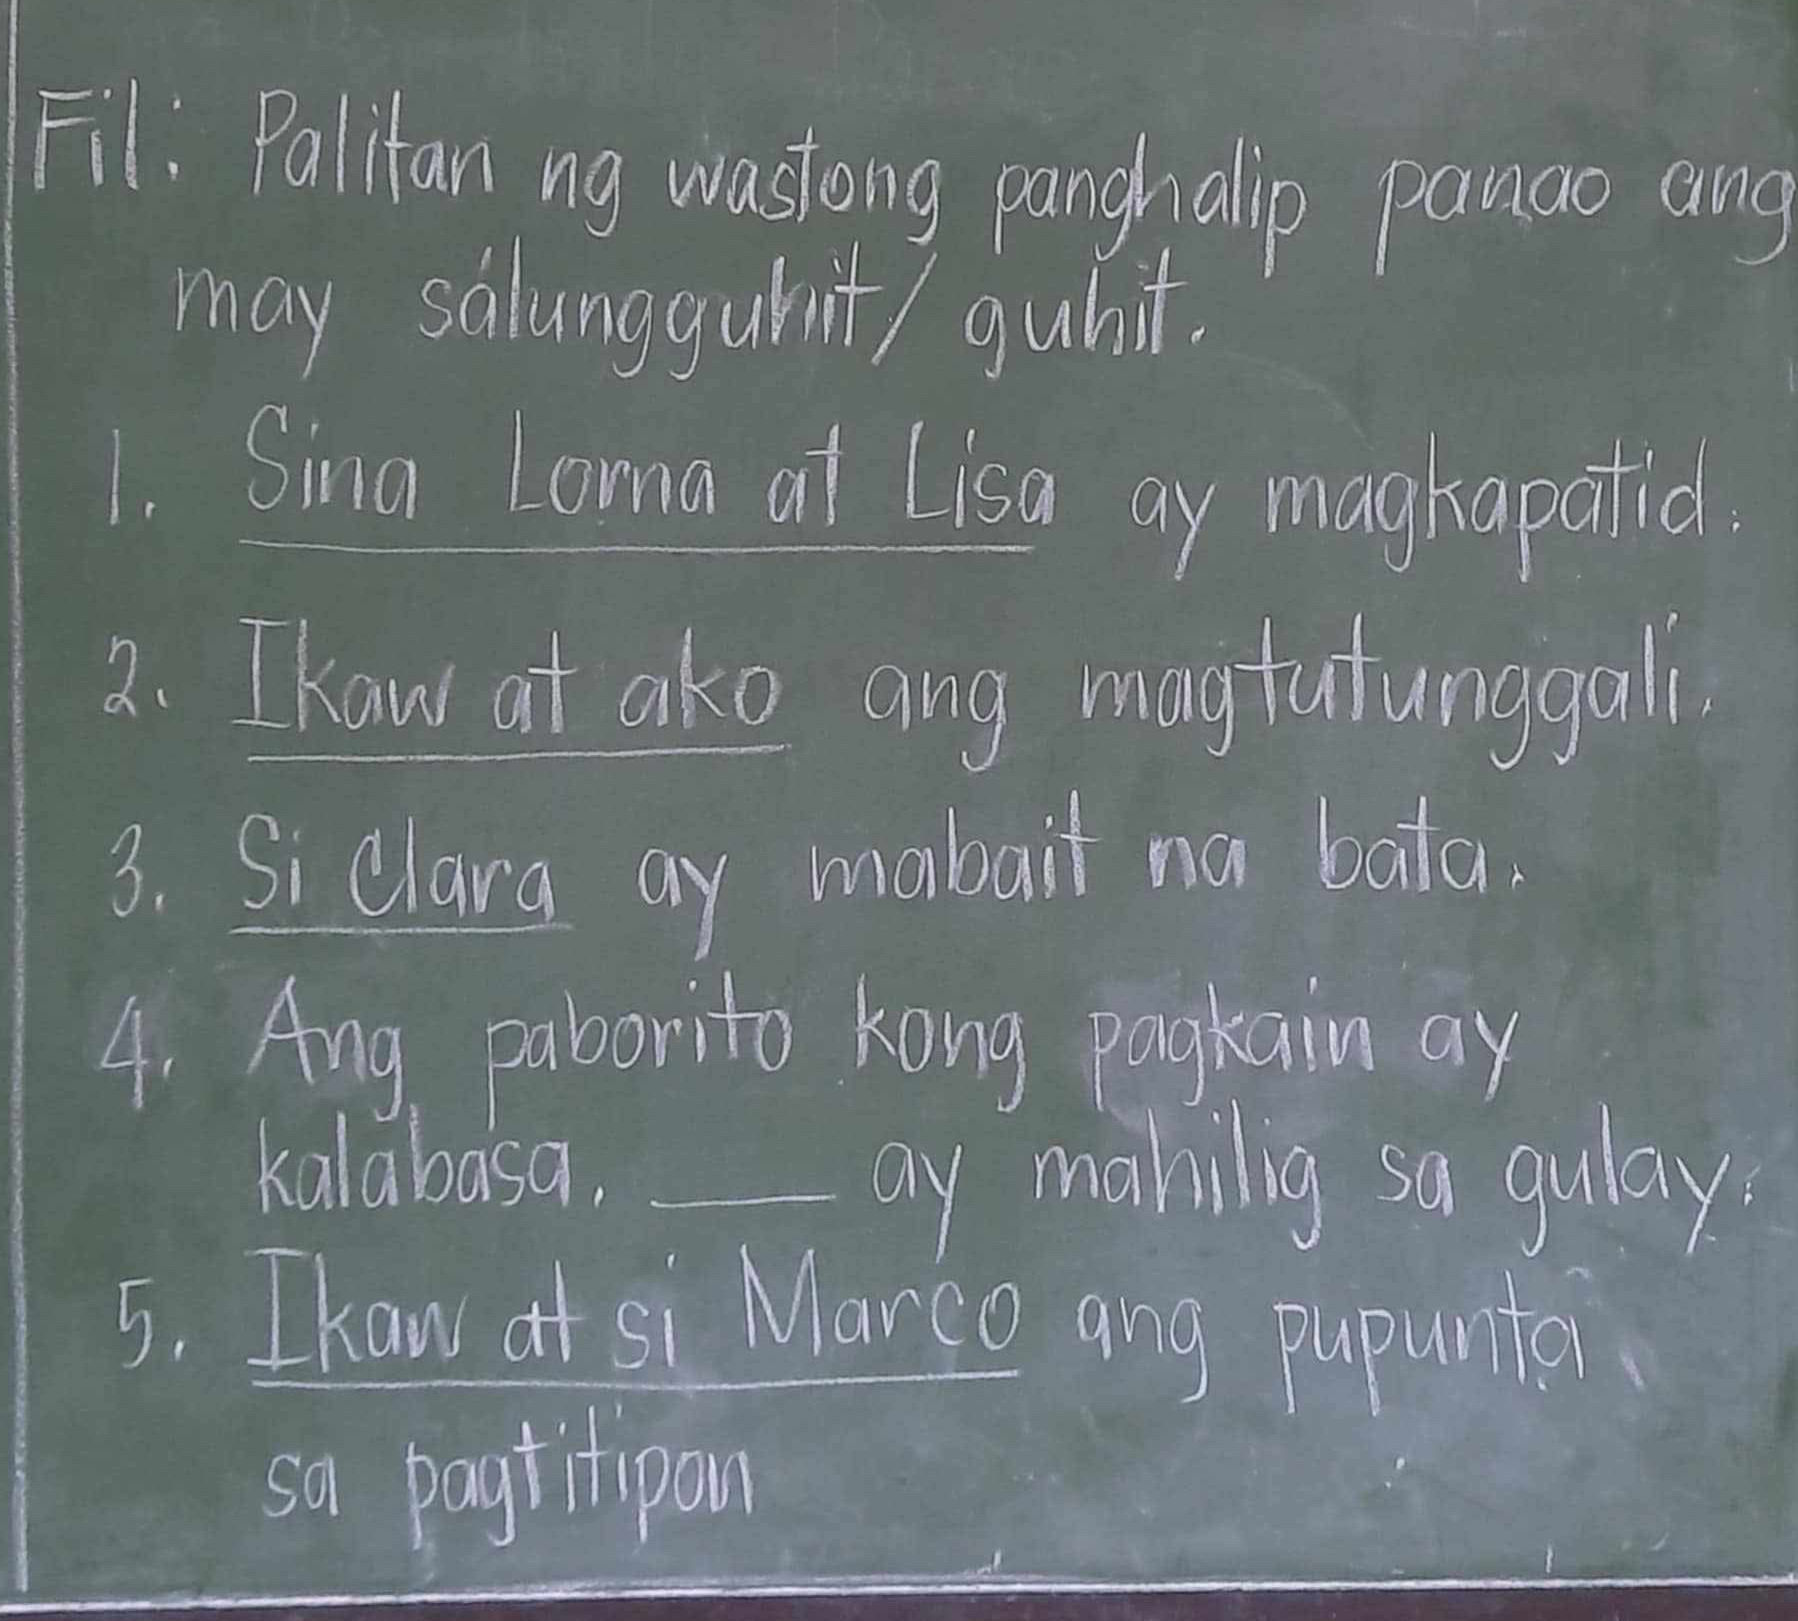 Fil: Palitan ng wastong panghalip panao ang
may salungguhit/guhit.
1. Sina Lorna at Lisa ay magkapatid.
2. Ikaw at ako ang magtutunggali.
3. Si Clara ay mabait na bata.
4. Ang paborito kong pagkain ay
kalabasa. ___ ay mahilig sa gulay.
5. Ikaw at si Marco ang pupunta
sa pagtitipon